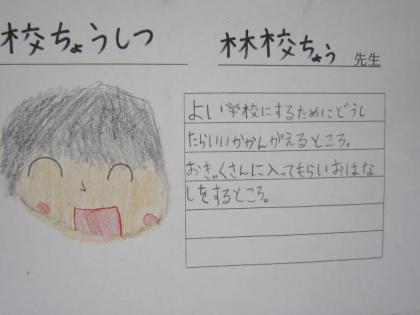 校ちょうしつ
林校ちょう 先生
よい学校にするためにどうし
たらいいかかんがえるところ。
おきゃくさんに入ってもらいおはな
しをするところ。